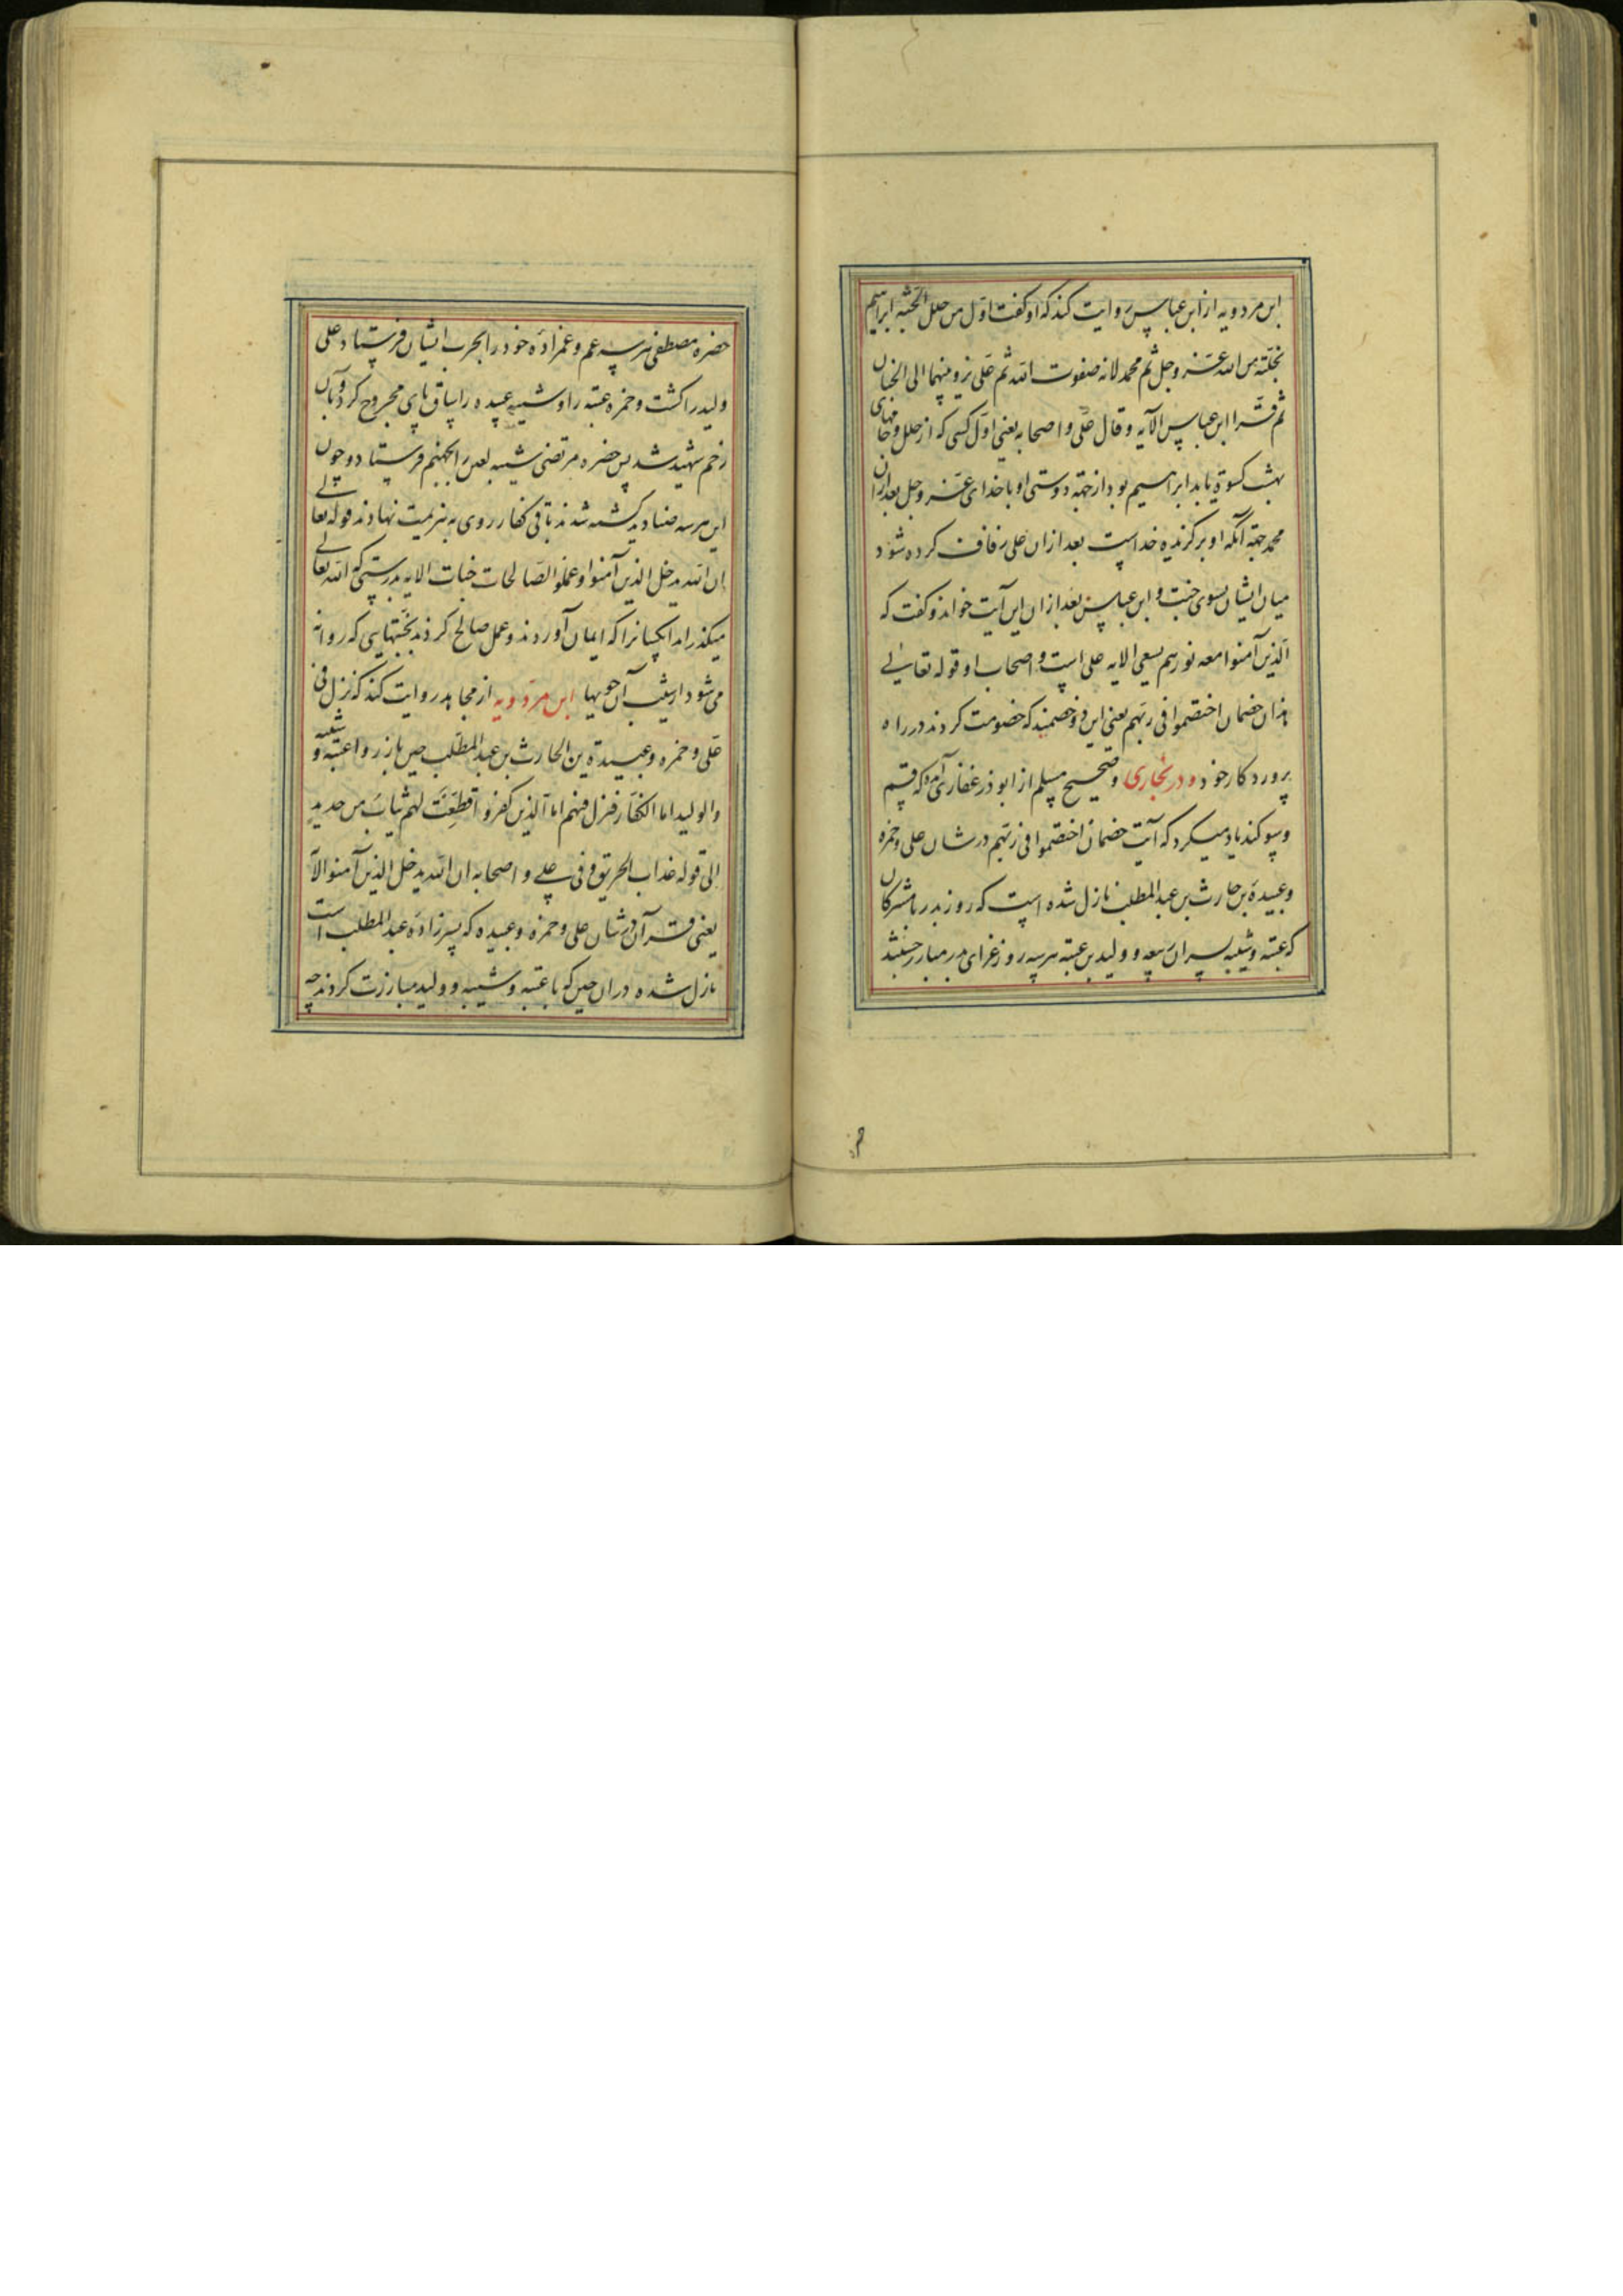 ابن مردویه از ابن عباس روایت کند که او کفت اول من حلل الجنة ابراهیم
بخلته من الله عز و جل ثم محمد لانه صفوت الله ثم علی یزف بینهما الی الجنان
ثم قرا ابن عباس الآیه و قال علی و اصحابه یعنی اول کسی که از حلل و جامهای
بهشت کسوة یابد ابراهیم بود از جهة دوستی او با خدای عز و جل بعد ازان
محمد جهة آنکه او برکزیده خداست بعد ازان علی زفاف کرده شود
میان ایشان بسوی جنت و ابن عباس بعد ازان این آیت خواند و کفت که
الذین آمنوا معه نورهم یسعی الایه علی است و اصحاب او قوله تعالی
هذان خصمان اختصموا فی ربهم یعنی این دو خصمند که خصومت کردند در راه
پرورد کار خود و در بخاری و صحیح مسلم از ابوذر غفاری آمده که قسم
و سوکند یاد میکرد که آیت خصمان اختصموا فی ربهم در شان علی و حمزه
و عبیدة بن حارث بن عبد المطلب نازل شده است که روز بدر با مشرکان
که عتبه و شیبه پسران ربیعه و ولید بن عتبه هر سه روز غزای بدر مبارز
حضرة مصطفی هر سه عم و عمزاده خود را بحرب ایشان فرستاد علی
ولید را کشت و حمزه عتبه را و شیبه عبیده را بساق پای مجروح کرد و بآن
زخم شهید شد پس حضرة مرتضی شیبه لعین را بجهنم فرستاد و چون
این هر سه صنادید کشته شدند باقی کفار روی به هزیمت نهادند قوله تعالی
ان الله یدخل الذین آمنوا و عملوا الصالحات جنات الایه بدرستی که الله تعالی
میکذراند آنکسانرا که ایمان آوردند و عمل صالح کردند بجنتهایی که روانه
می شود از شیب آن جویها ابن مردویه از مجاهد روایت کند که نزل فی
علی و حمزه و عبیدة بن الحارث بن عبد المطلب حین بارزوا عتبه و شیبه
و الولید اما الکفار فنزل فیهم اما الذین کفروا قطعت لهم ثیاب من حدید
الی قوله عذاب الحریق و فی علی و اصحابه ان الله یدخل الذین آمنوا الآ
یعنی قرآن در شان علی و حمزه و عبیده که پسرزاده عبد المطلب است
نازل شده دران حین که با عتبه و شیبه و ولید مبارزت کردند چه